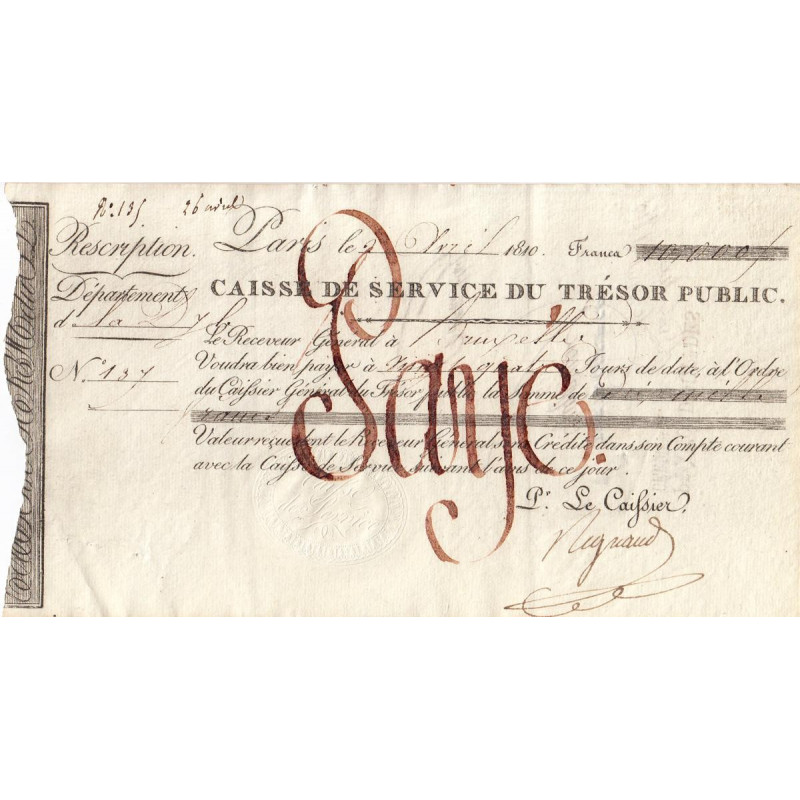 N.º 135 26 avril
Rescription. Paris le 2 Avril 1810. Francs 10,000 f
Département CAISSE DE SERVICE DU TRÉSOR PUBLIC.
d
Le Receveur Général à Bruxelles
N.º 137
Voudra bien payer à vingt quatre Jours de date, à l'Ordre
du Caissier Général du Trésor public la Somme de dix mille
francs
Valeur reçue dont le Receveur Général sera Crédité dans son Compte courant
avec la Caisse de Service suivant l'avis de ce jour.
Payé.
P.r Le Caissier.